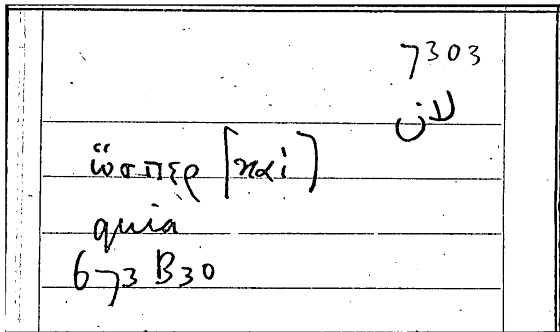 7303
لان
ὥσπερ [καὶ]
quia
673 B30